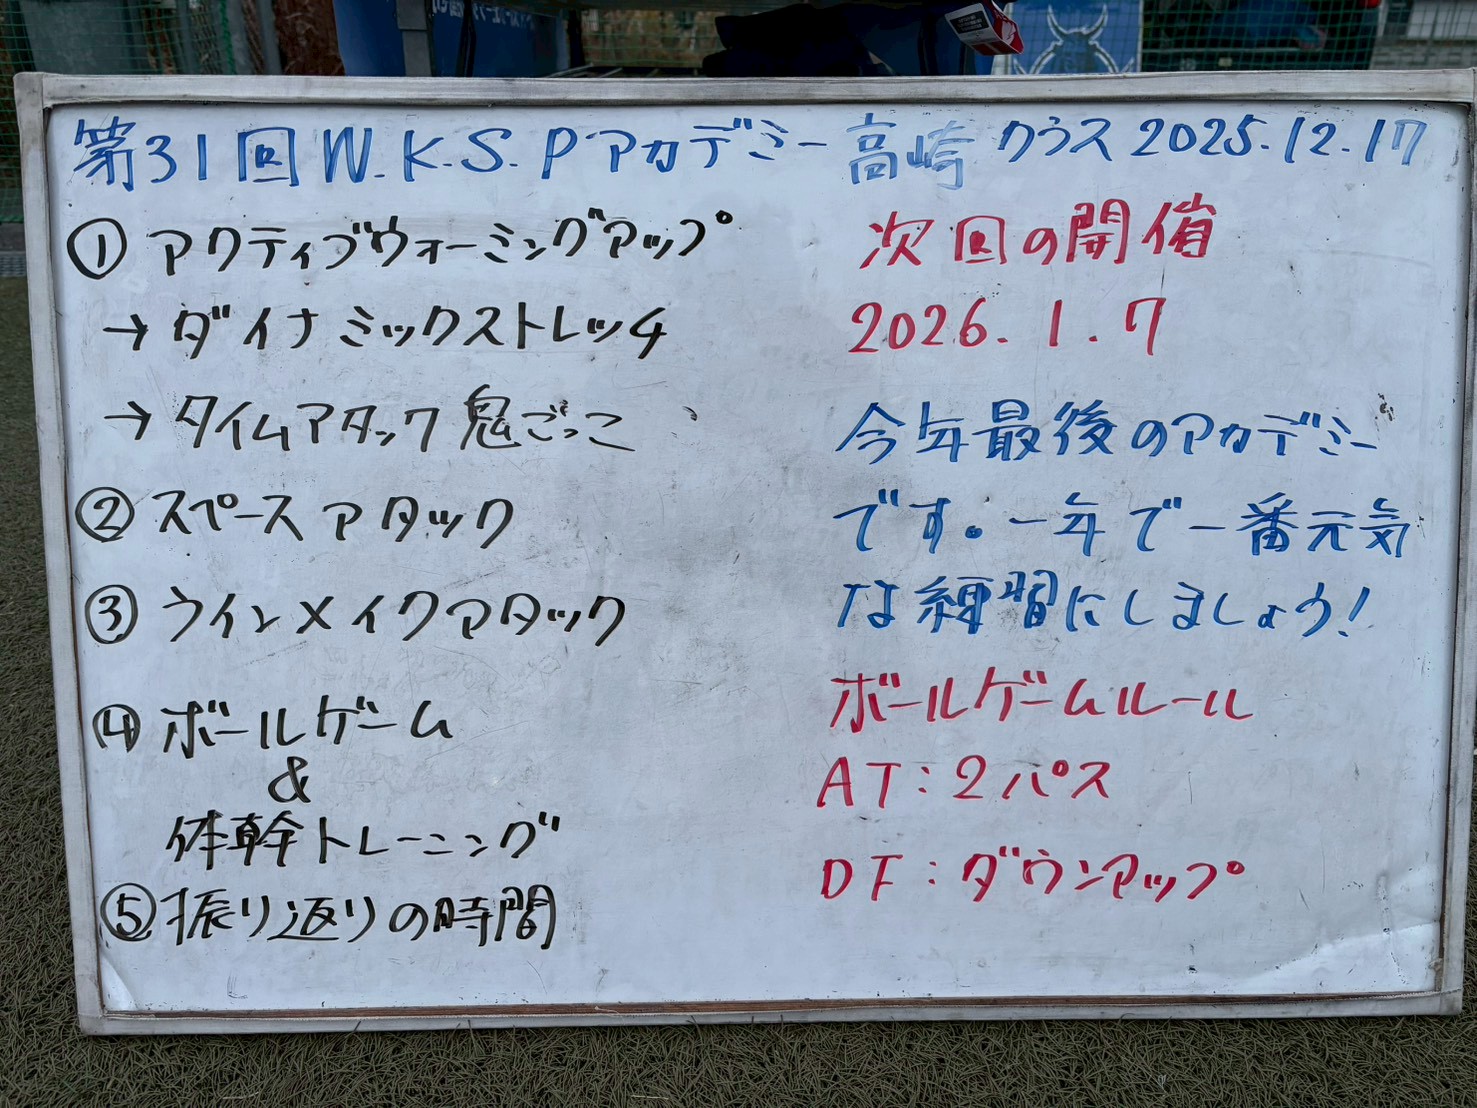 第31回 W.K.S.Pアカデミー 高崎クラス 2025.12.17
① アクティブウォーミングアップ
→ ダイナミックストレッチ
→ タイムアタック鬼ごっこ
② スペースアタック
③ ラインメイクアタック
④ ボールゲーム
&
体幹トレーニング
⑤ 振り返りの時間
次回の開催
2026.1.7
今年最後のアカデミー
です。一年で一番元気
な練習にしましょう!
ボールゲームルール
AT:2パス
DF:ダウンアップ